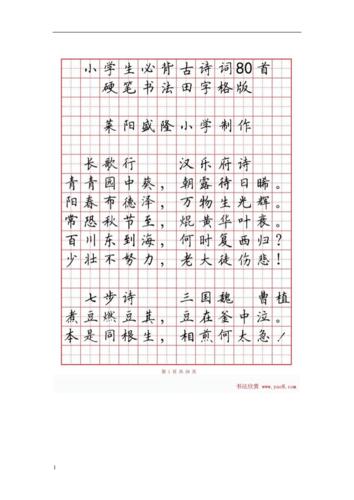 小学生必背古诗词80首
硬笔书法田字格版
莱阳盛隆小学制作
长歌行 汉乐府诗
青青园中葵，朝露待日晞。
阳春布德泽，万物生光辉。
常恐秋节至，焜黄华叶衰。
百川东到海，何时复西归？
少壮不努力，老大徒伤悲！
七步诗 三国魏 曹植
煮豆燃豆萁，豆在釜中泣。
本是同根生，相煎何太急！
书法欣赏 www.yac8.com
1